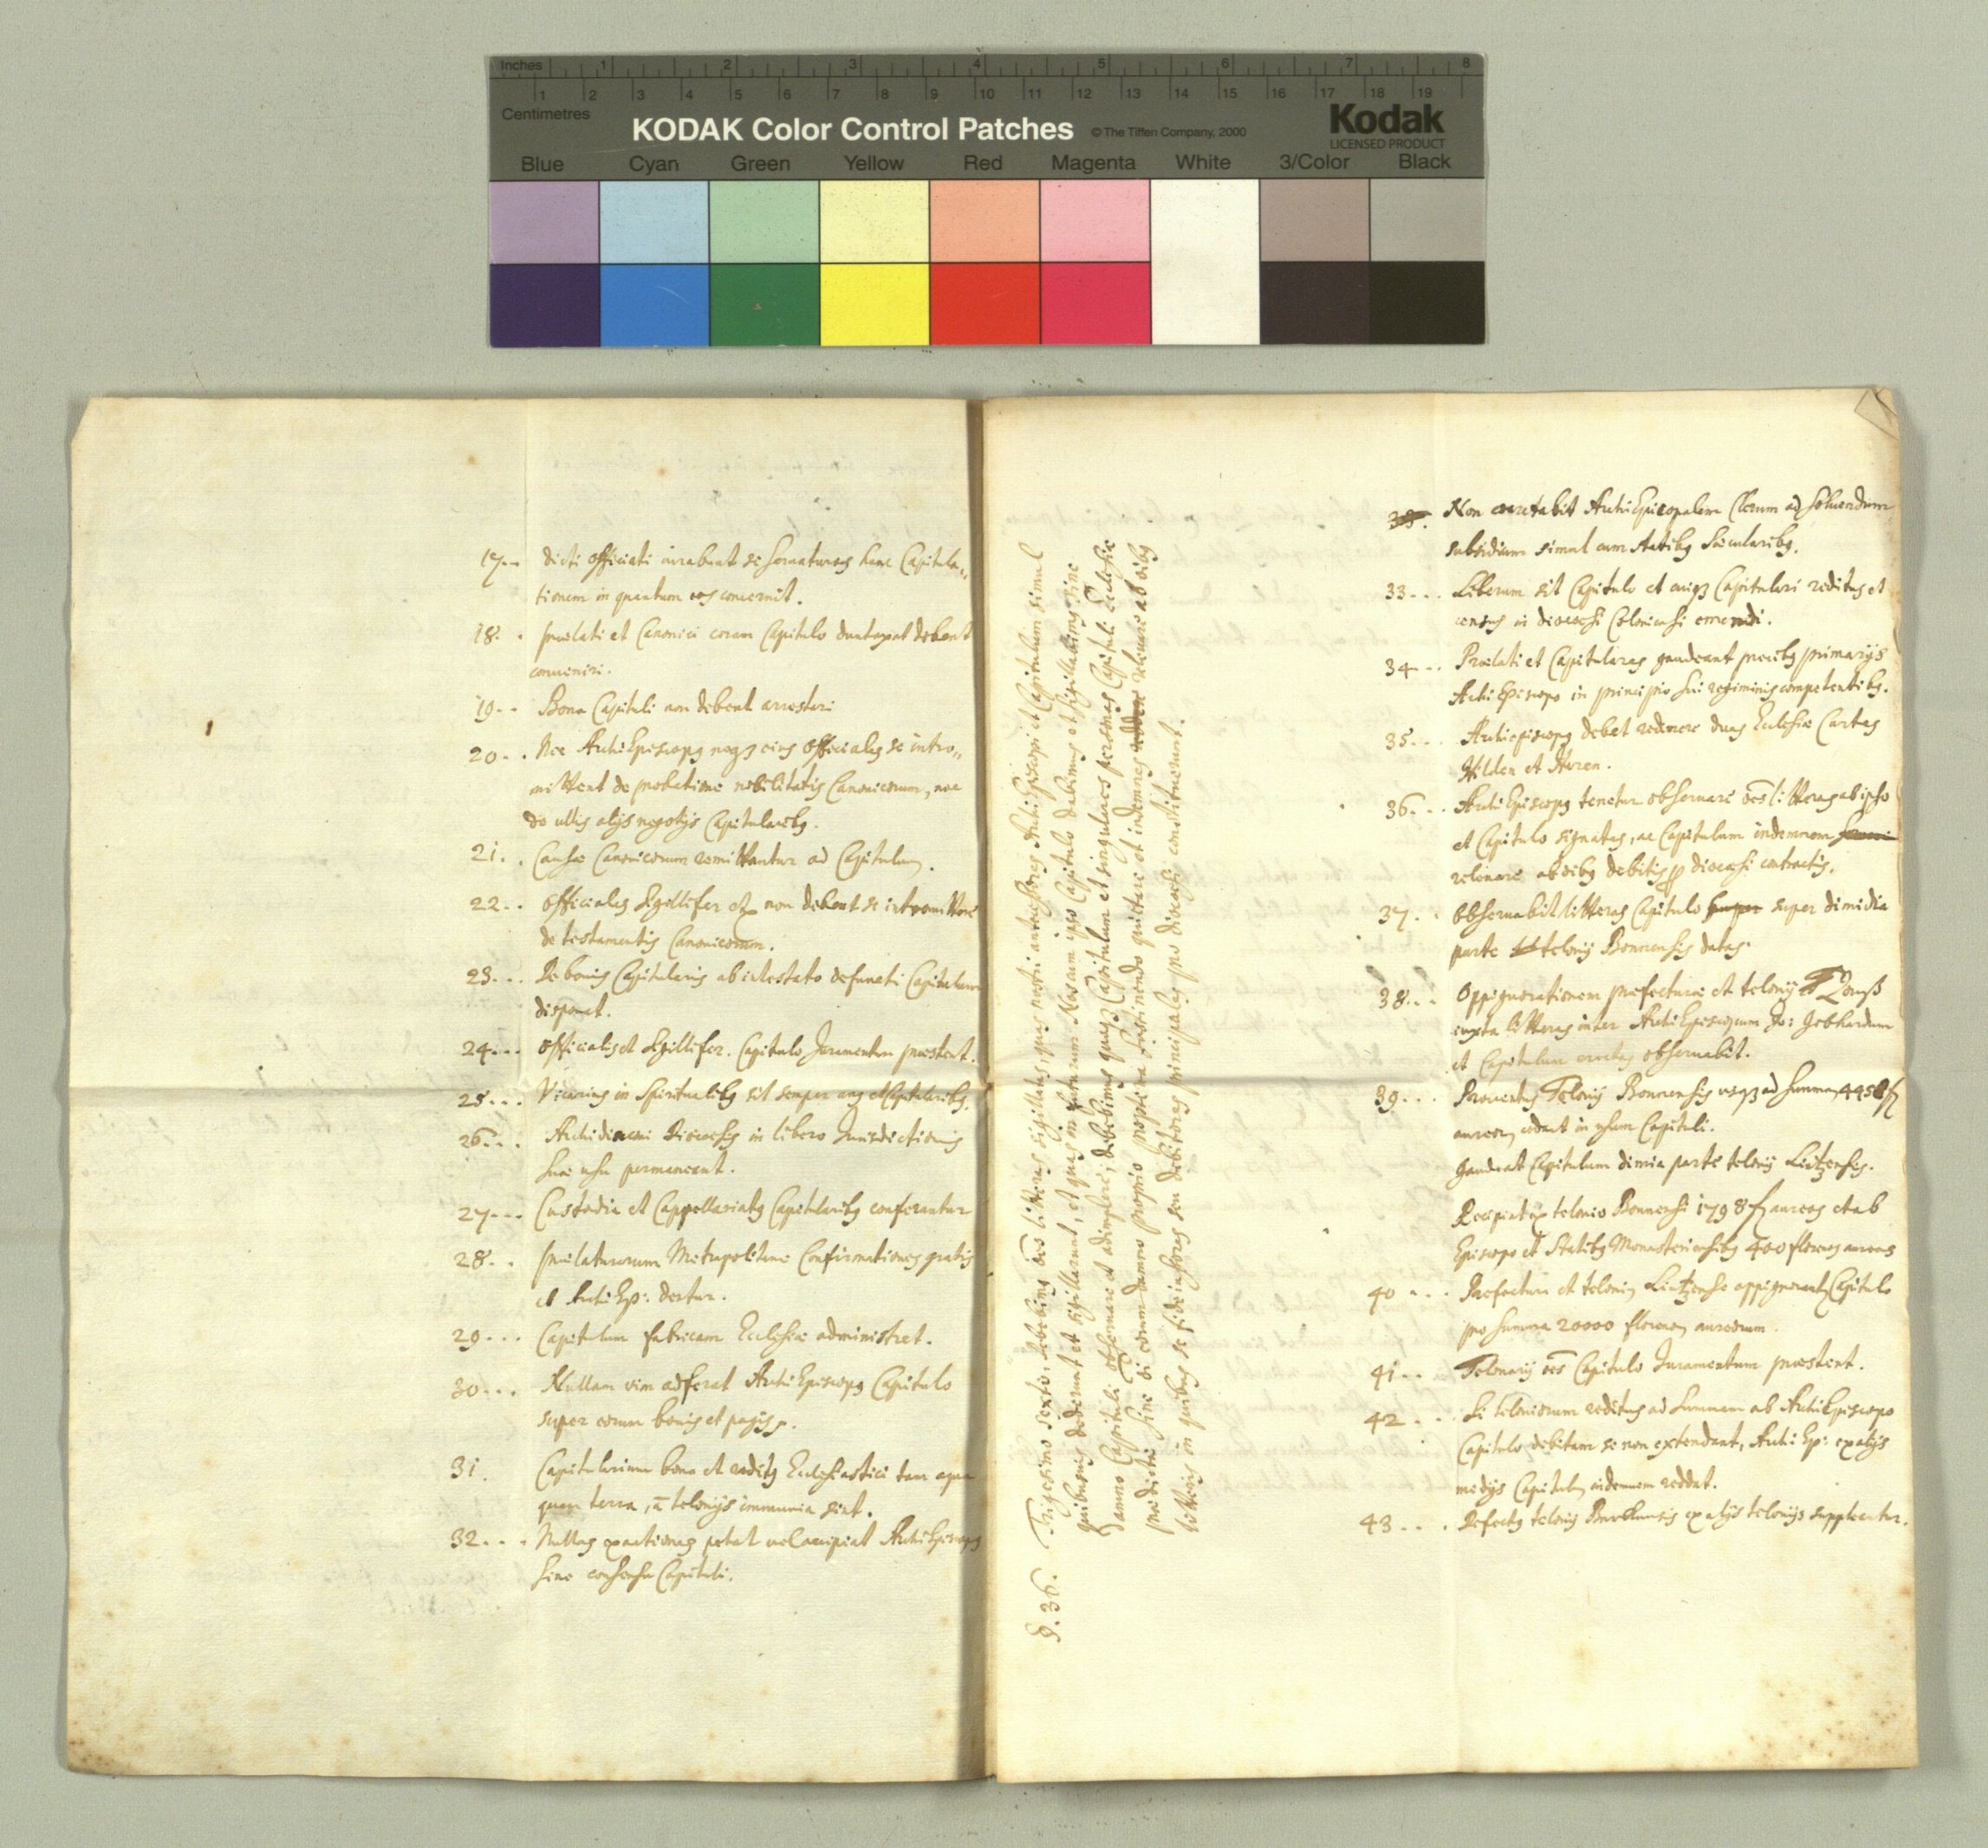 Inches 1 2 3 4 5 6 7 8
1 2 3 4 5 6 7 8 9 10 11 12 13 14 15 16 17 18 19
Centimetres
KODAK Color Control Patches © The Tiffen Company, 2000 Kodak
LICENSED PRODUCT
Blue Cyan Green Yellow Red Magenta White 3/Color Black
17.. dicti officiati iurabunt se servaturos hanc Capitula„
tionem in quantum eos concernit.
18. . praelati et Canonici coram Capitulo duntaxat debent
conveniri.
19.. Bona Capituli non debent arrestari
20.. Nec ArchiEpiscopus neque eius officiales se intro„
mittent de probatione nobilitatis Canonicorum, nec
de ullis alijs negotijs Capitularibus.
21.. Causae Canonicorum remittantur ad Capitulum.
22.. officiales Sigillifer etc non debent se intromittere
de testamentis Canonicorum.
23... De bonis Capitularis ab intestato defuncti Capitulum
disponet.
24... officialis et Sigillifer Capitulo Juramentum praestent.
25... Vicarius in Spiritualibus sit semper unus ex Capitularibus.
26... Archidiaconi Dioecesis in libero Jurisdictionis
suae usu permaneant.
27... Custodia et Cappellariatus Capitularibus conferantur
28.. praelaturarum Metropolitanae Confirmationes gratis
ab ArchiEp: dentur.
29... Capitulum fabricam Ecclesiae administret.
30... Nullam vim adferat ArchiEpiscopus Capitulo
super eorum bonis et pagis.
31. Capitularium bona et reditus Ecclesiastici tam aqua
quam terra, à telonijs immunia sint.
32... Nullas exactiones petat vel accipiat ArchiEpiscopus
sine consensu Capituli.
§. 36. Trigesimo sexto, debebimus oes litteras sigillatas quas nostri antecessores ArchiEpiscopi et Capitulum simul
quibusvis dederunt et sigillarunt, et quas in futurum Nos cum ipso Capitulo dabimus et sigillabimus sine
damno Capituli observare et adimplere; debebimus quoque Capitulum et singulares personas Capituli Ecclesiae
praedictae sine eorum damno proprio propterea sustinendo quittare et indemnes reddere relevare ab oibus
litteris in quibus se fideiussores seu debitores principales pro dioecesi constituerunt.
33. Non coarctabit ArchiEpiscopalem Clerum ad solvendum
subsidium simul cum statibus saecularibus.
33... Liberum sit Capitulo et cuique Capitulari reditus et
census in dioecesi Coloniensi emendi.
34... Praelati et Capitulares gaudeant precibus primarijs
ArchiEpiscopo in principio sui regiminis competentibus.
35... Archiepiscopus debet redimere duas Ecclesiae Curtes
Hilden et Haren.
36... ArchiEpiscopus tenetur observare oes litteras ab ipso
et Capitulo signatas, ac Capitulum indemnem
relevare ab oibus debitis pro dioecesi contractis.
37.. Observabit litteras Capitulo super super dimidia
parte telonij Bonnensis datas.
38... Oppignorationem praefecturae et telonij Zonß
iuxta litteras inter ArchiEpiscopum Jo: Gebhardum
et Capitulum erectas observabit.
39... Proventus Telonij Bonnensis usque ad summam 4458 fl
aureorum cedant in usum Capituli.
Gaudeat Capitulum dimia parte telonij Lintzensis.
Recipiat ex telonio Bonnensi 1798 fl aureos et ab
Episcopo et Statibus Monasteriensibus 400 florenos aureos
40... Praefectura et telonium Lintzense oppignorantur Capitulo
pro summa 20000 florenorum aureorum.
41.. Telonarij oes Capitulo Juramentum praestent.
42... Si teloniorum reditus ad summam ab ArchiEpiscopo
Capitulo debitam se non extendant, ArchiEp: ex alijs
medijs Capitulum indemnem reddat.
43... Defectus telonij ex alijs telonijs suppleatur.